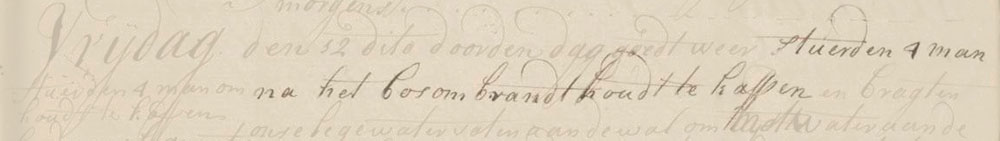 morgens
Vrijdag den 12 dito doorden dag goedt weer stuerden 4 man
stuerden 4 man om
na het bos om brandt houdt te kappen en bragten
houdt te kappen
onse legewatervaten aande wal om water aande